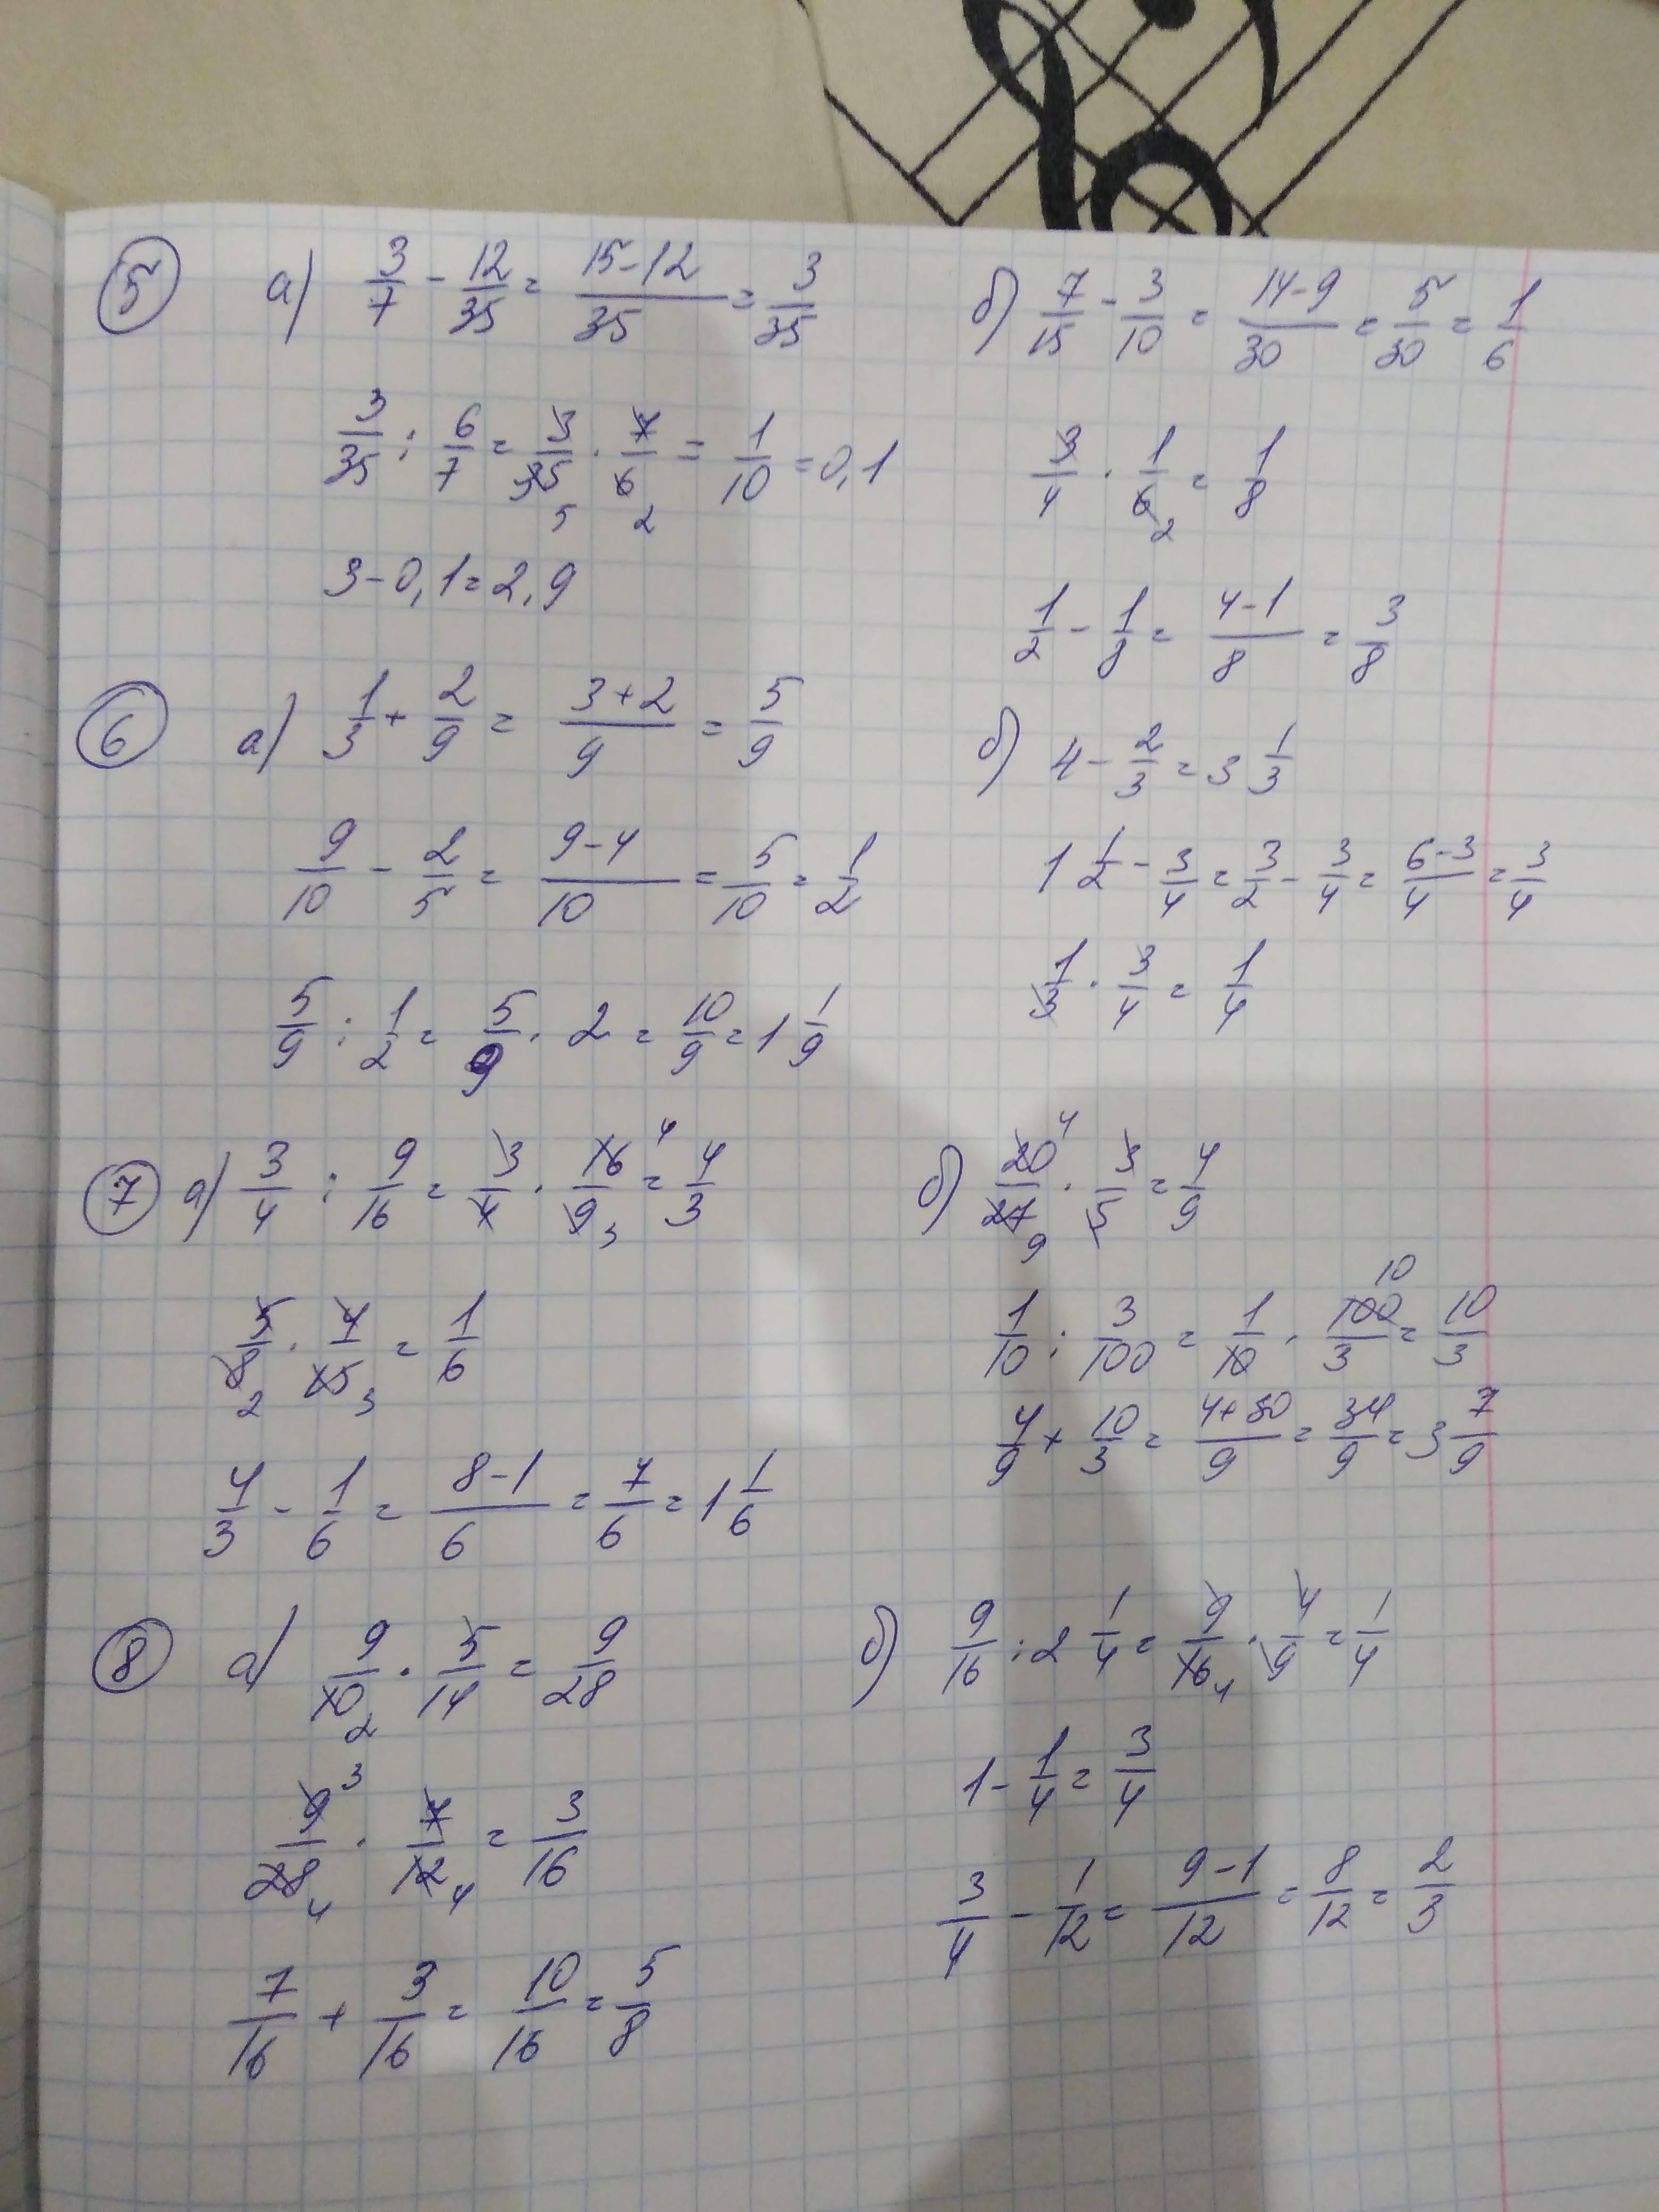 5 а) 3/7 - 12/35 = (15-12)/35 = 3/35
3/35 : 6/7 = 3/35 · 7/6 = 1/10 = 0,1
5 2
3 - 0,1 = 2,9
б) 7/15 - 3/10 = (14-9)/30 = 5/30 = 1/6
3/4 · 1/6 = 1/8
2
1/2 - 1/8 = (4-1)/8 = 3/8
6 а) 1/3 + 2/9 = (3+2)/9 = 5/9
9/10 - 2/5 = (9-4)/10 = 5/10 = 1/2
5/9 : 1/2 = 5/9 · 2 = 10/9 = 1 1/9
б) 4 - 2/3 = 3 1/3
1 1/2 - 3/4 = 3/2 - 3/4 = (6-3)/4 = 3/4
1/3 · 3/4 = 1/4
7 а) 3/4 : 9/16 = 3/4 · 16/9 = 4/3
4 3
5/8 · 4/15 = 1/6
2 3
4/3 - 1/6 = (8-1)/6 = 7/6 = 1 1/6
б) 20/27 · 3/5 = 4/9
4 9
1/10 : 3/100 = 1/10 · 100/3 = 10/3
10
4/9 + 10/3 = (4+30)/9 = 34/9 = 3 7/9
8 а) 9/10 · 5/14 = 9/28
2
9/28 · 7/12 = 3/16
3 4 4
7/16 + 3/16 = 10/16 = 5/8
б) 9/16 : 2 1/4 = 9/16 · 4/9 = 1/4
4
1 - 1/4 = 3/4
3/4 - 1/12 = (9-1)/12 = 8/12 = 2/3